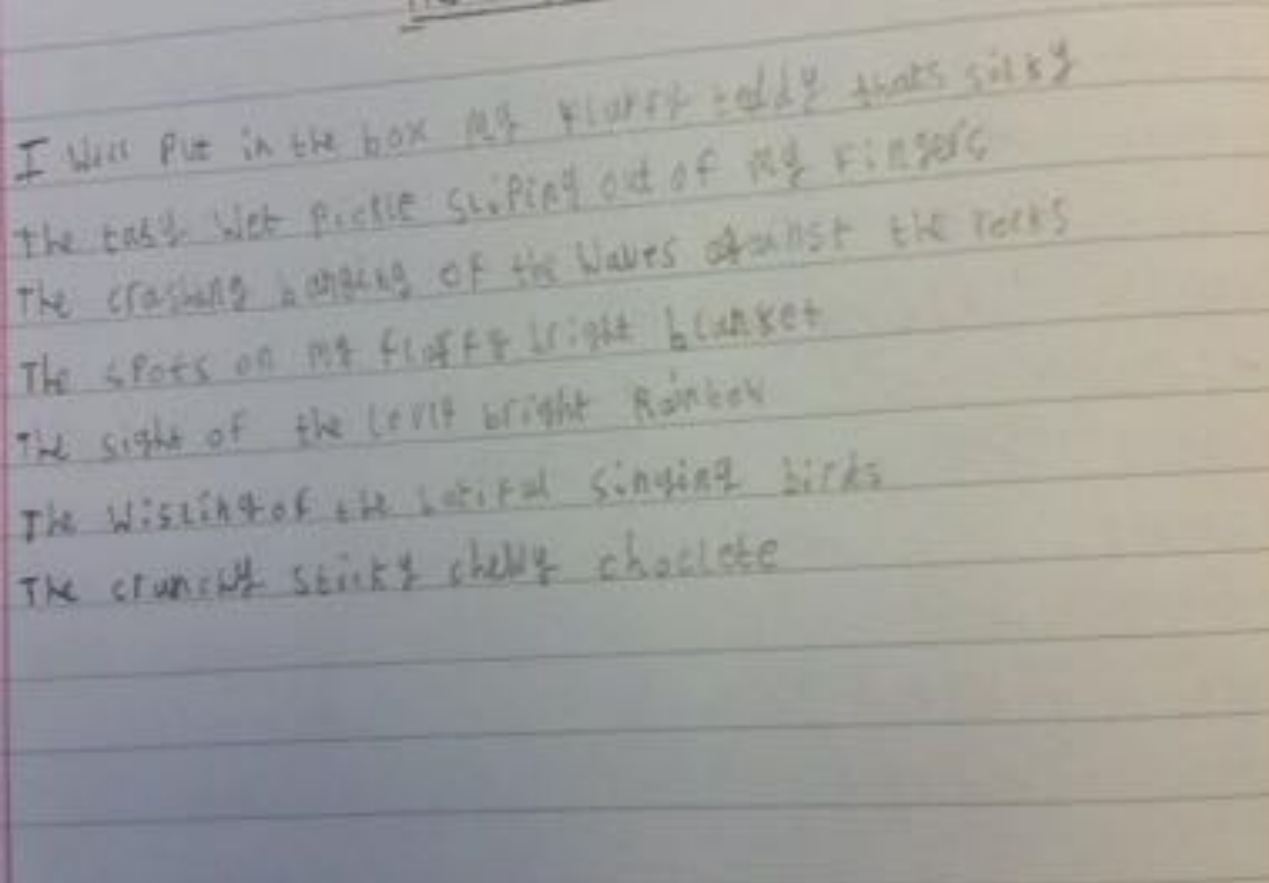 I Will Put in the box my fluffy teddy thats silky
the tasy Wet Pickle sliPing out of my fingers
The crashing banging of the Waves against the rocks
The sPots on my fluffy bright blanket
The sight of the lovly bright Rainbow
The Wisling of the botiful singing birds
The crunchy sticky chewy choclete